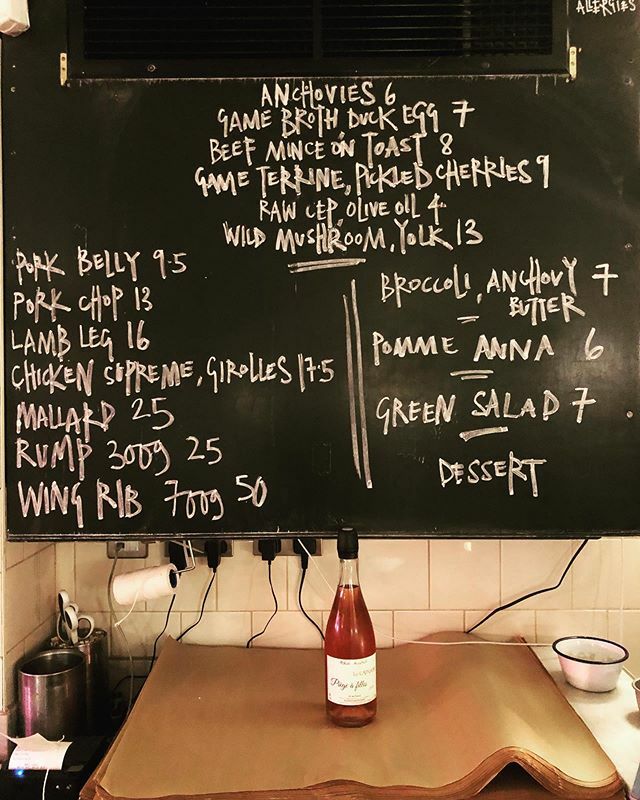 ALLERGIES
ANCHOVIES 6
GAME BROTH DUCK EGG 7
BEEF MINCE ON TOAST 8
GAME TERRINE, PICKLED CHERRIES 9
RAW CEP, OLIVE OIL 4
WILD MUSHROOM, YOLK 13
PORK BELLY 9.5
PORK CHOP 13
LAMB LEG 16
CHICKEN SUPREME, GIROLLES 17.5
MALLARD 25
RUMP 300g 25
WING RIB 700g 50
BROCCOLI, ANCHOVY 7
BUTTER
POMME ANNA 6
GREEN SALAD 7
DESSERT
Piège à filles